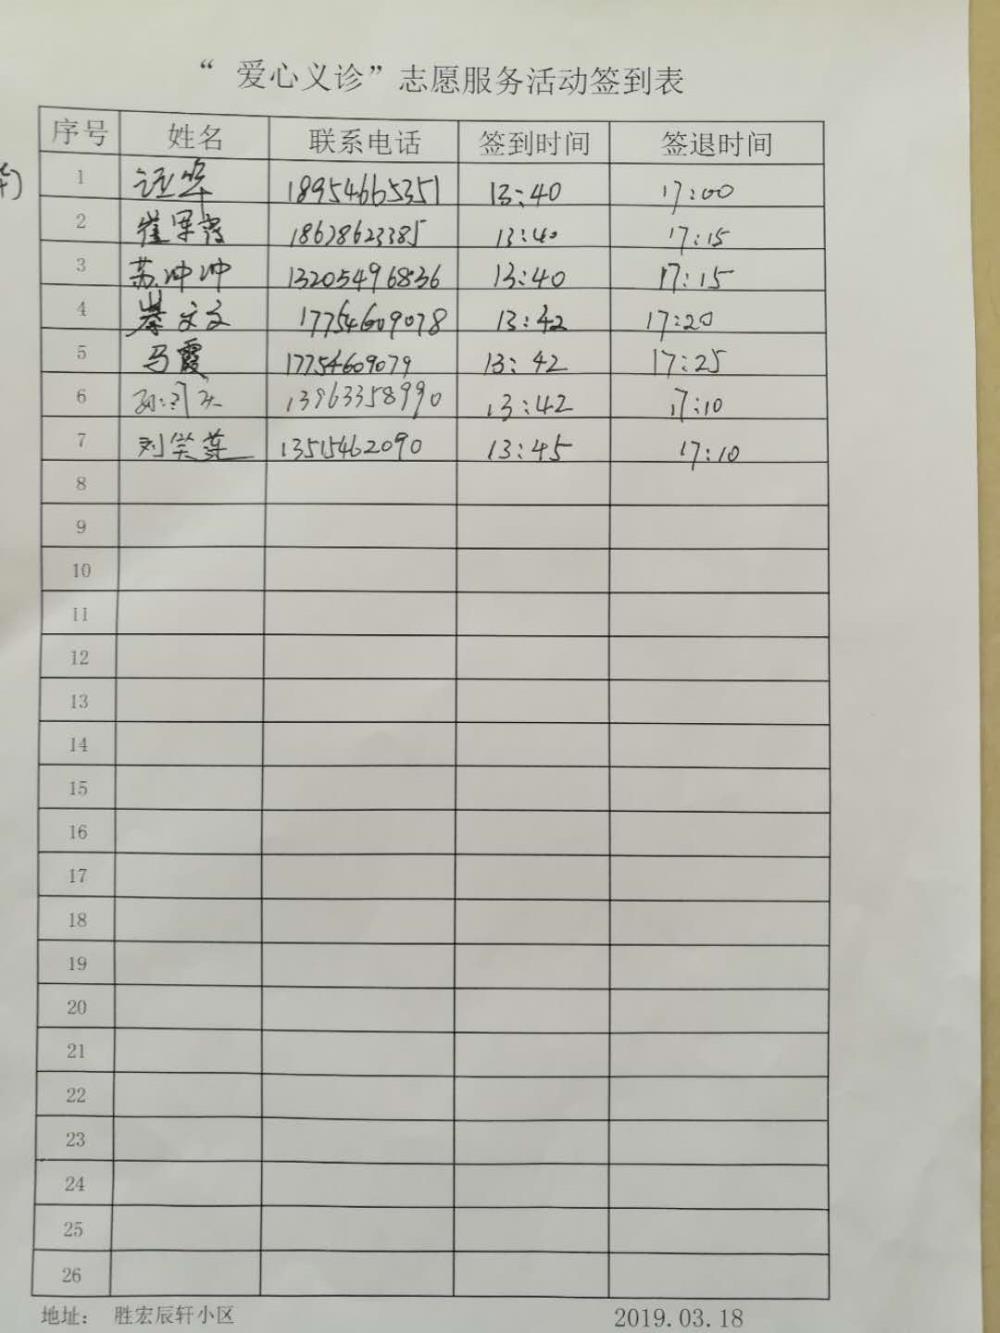 “爱心义诊”志愿服务活动签到表
序号 姓名 联系电话 签到时间 签退时间
1 18954665351 13:40 17:00
2 崔 霞 18678623385 13:40 17:15
3 苏冲冲 13205496836 13:40 17:15
4 綦文文 17754609078 13:42 17:20
5 马霞 17754609079 13:42 17:25
6 13963358990 13:42 17:10
7 刘笑莲 13515462090 13:45 17:10
8
9
10
11
12
13
14
15
16
17
18
19
20
21
22
23
24
25
26
地址： 胜宏辰轩小区 2019.03.18